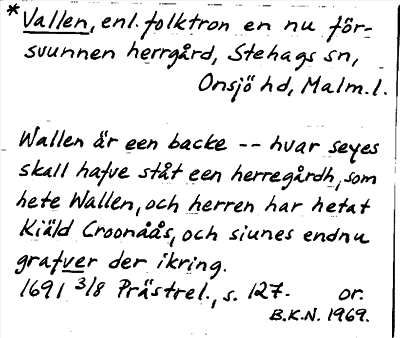 *Vallen, enl. folktron en nu för-
svunnen herrgård, Stehags sn,
Onsjö hd, Malm. l.
Wallen är een backe -- hvar seyes
skall hafve ståt een herregårdh, som
hete Wallen, och herren har hetat
Kiäld Croonåås, och siunes endnu
grafver der ikring.
1691 3/8 Prästrel., s. 127. or.
B.K.N. 1969.